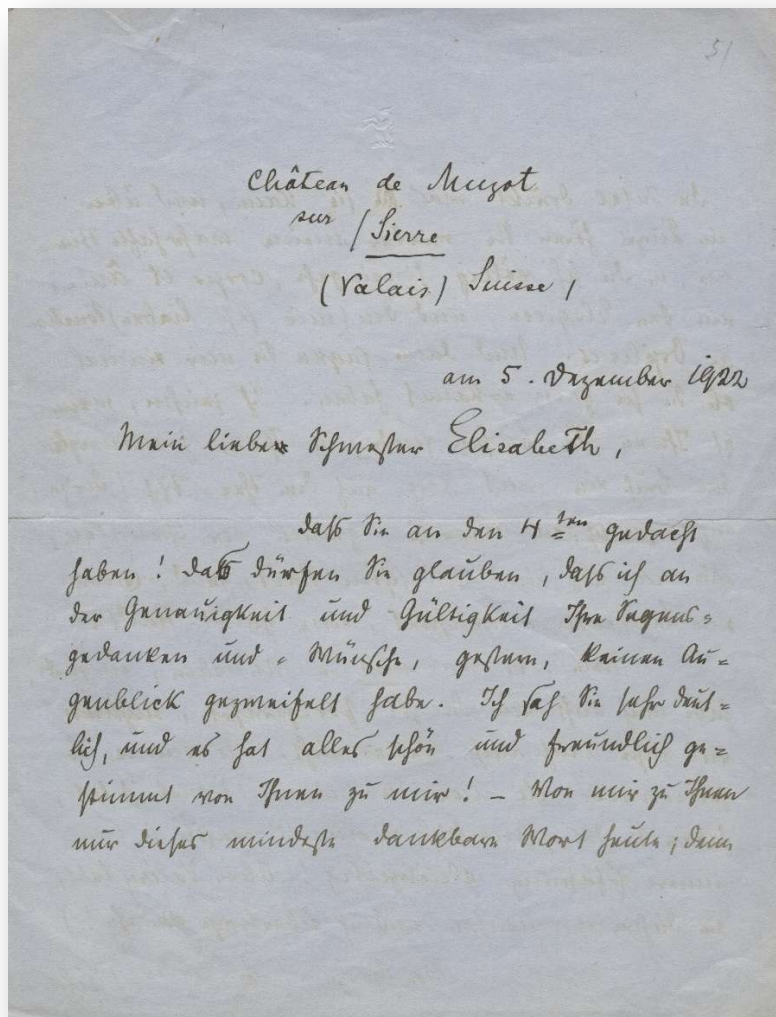 51
Château de Muzot
sur / Sierre
(Valais) Suisse /
am 5. Dezember 1922
Mein liebe Schwester Elisabeth,
daß Sie an den 4ten gedacht
haben! daß dürfen Sie glauben, daß ich an
der Genauigkeit und Gültigkeit Ihre Segens=
gedanken und = Wünsche, gestern, keinen Au=
genblick gezweifelt habe. Ich sah Sie sehr deut=
lich, und es hat alles schön und freundlich ge=
stimmt von Ihnen zu mir! – Von mir zu Ihnen
nur dieses mindeste dankbare Wort heute; denn